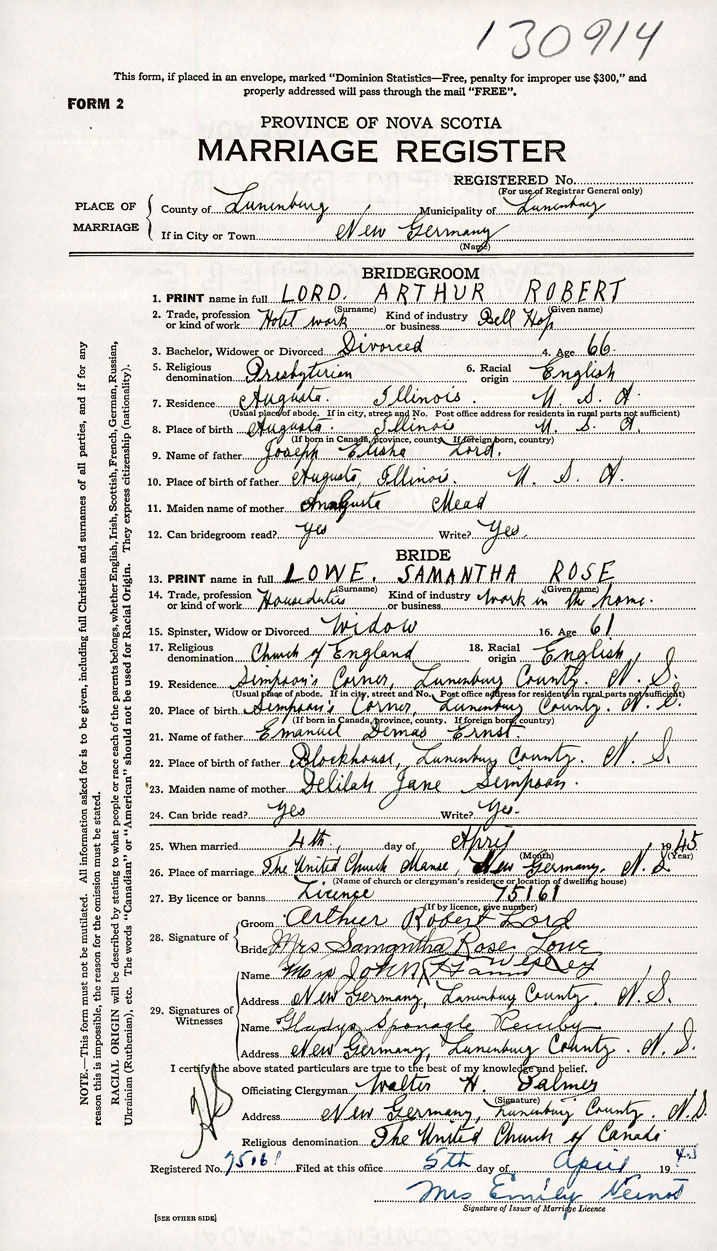 130914
This form, if placed in an envelope, marked "Dominion Statistics—Free, penalty for improper use $300," and
properly addressed will pass through the mail "FREE".
FORM 2
PROVINCE OF NOVA SCOTIA
MARRIAGE REGISTER
REGISTERED No.
(For use of Registrar General only)
PLACE OF MARRIAGE
County of Lunenburg Municipality of Lunenburg
If in City or Town New Germany
(Name)
BRIDEGROOM
1. PRINT name in full LORD. ARTHUR ROBERT
(Surname) (Given name)
2. Trade, profession or kind of work Hotel work Kind of industry or business Bell Hop
3. Bachelor, Widower or Divorced Divorced 4. Age 66.
5. Religious denomination Presbyterian 6. Racial origin English
7. Residence Augusta. Illinois. U. S. A.
(Usual place of abode. If in city, street and No. Post office address for residents in rural parts not sufficient)
8. Place of birth Augusta. Illinois U. S. A.
(If born in Canada, province, county. If foreign born, country)
9. Name of father Joseph Elisha Lord.
10. Place of birth of father Augusta, Illinois. U. S. A.
11. Maiden name of mother Mead
12. Can bridegroom read? Yes Write? Yes.
BRIDE
13. PRINT name in full LOWE. SAMANTHA ROSE
(Surname) (Given name)
14. Trade, profession or kind of work Houseduties Kind of industry or business work in the home.
15. Spinster, Widow or Divorced Widow 16. Age 61
17. Religious denomination Church of England 18. Racial origin English
19. Residence Simpson's Corner, Lunenburg County. N. S.
(Usual place of abode. If in city, street and No. Post office address for residents in rural parts not sufficient)
20. Place of birth Simpson's Corner, Lunenburg County. N. S.
(If born in Canada, province, county. If foreign born, country)
21. Name of father Emanuel Demas Ernst
22. Place of birth of father Blockhouse, Lunenburg County. N. S.
23. Maiden name of mother Delilah Jane Simpson.
24. Can bride read? Yes Write? Yes.
25. When married 4th. day of April 1945
(Month) (Year)
26. Place of marriage The United Church Manse, New Germany. N. S.
(Name of church or clergyman's residence or location of dwelling house)
27. By licence or banns Licence 75161
(If by licence, give number)
28. Signature of
Groom Arthur Robert Lord
Bride Mrs Samantha Rose Lowe
29. Signatures of Witnesses
Name Mrs John
Address New Germany, Lunenburg County. N. S.
Name Gladys Sponagle
Address New Germany, Lunenburg County. N. S.
I certify the above stated particulars are true to the best of my knowledge and belief.
Officiating Clergyman Walter H. Palmer
(Signature)
Address New Germany, Lunenburg County. N. S.
Religious denomination The United Church of Canada
Registered No. 75161 Filed at this office 5th day of April 1945
Mrs Emily Veinot
Signature of Issuer of Marriage Licence
[SEE OTHER SIDE]
NOTE.—This form must not be mutilated. All information asked for is to be given, including full Christian and surnames of all parties, and if for any
reason this is impossible, the reason for the omission must be stated.
RACIAL ORIGIN will be described by stating to what people or race each of the parents belongs, whether English, Irish, Scottish, French, German, Russian,
Ukrainian (Ruthenian), etc. The words "Canadian" or "American" should not be used for Racial Origin. They express citizenship (nationality).